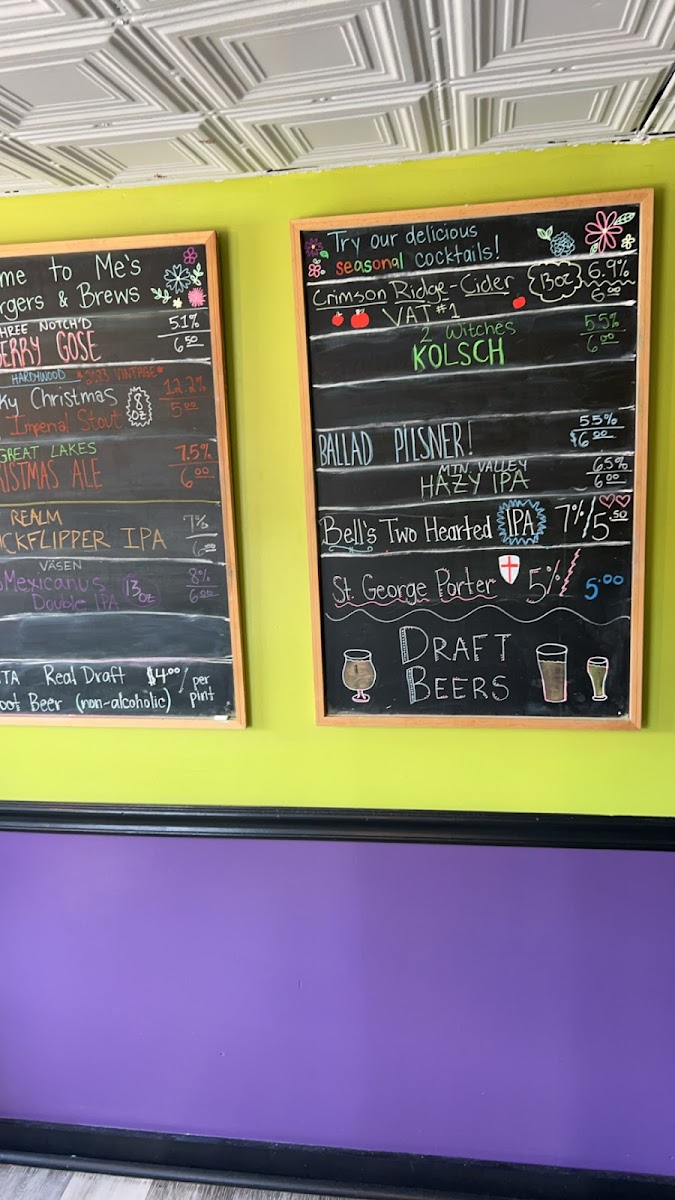 me to Me's
rgers & Brews
THREE NOTCH'D
ERRY GOSE
5.1%
6.50
HARDYWOOD * 2023 VINTAGE *
ky Christmas
Imperial Stout
8 oz
12.2%
5.00
GREAT LAKES
ISTMAS ALE
7.5%
6.00
REALM
CKFLIPPER IPA
7%
6.00
VÄSEN
Mexicanus
Double IPA
13 oz
8%
6.00
TA Real Draft
oot Beer (non-alcoholic)
$4.00/per pint
Try our delicious
seasonal cocktails!
Crimson Ridge-Cider
VAT #1
13oz
6.9%
6.00
2 Witches
KOLSCH
5.5%
6.00
BALLAD PILSNER!
5.5%
$6.00
MTN. VALLEY
HAZY IPA
6.5%
6.00
Bell's Two Hearted IPA 7%/5.50
St. George Porter 5% 5.00
DRAFT
BEERS